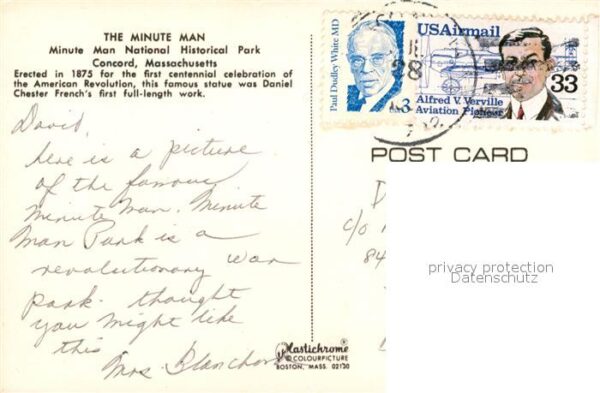 THE MINUTE MAN
Minute Man National Historical Park
Concord, Massachusetts
Erected in 1875 for the first centennial celebration of
the American Revolution, this famous statue was Daniel
Chester French's first full-length work.
Paul Dudley White MD
USAirmail
28
3
33
Alfred V. Verville
Aviation Pioneer
POST CARD
David,
here is a picture
of the famous
Minute Man. Minute
Man Park is a
revolutionary war
park. thought
you might like
this
Mrs Blanchard
D
c/o
84
privacy protection
Datenschutz
Plastichrome
COLOURPICTURE
BOSTON, MASS. 02130